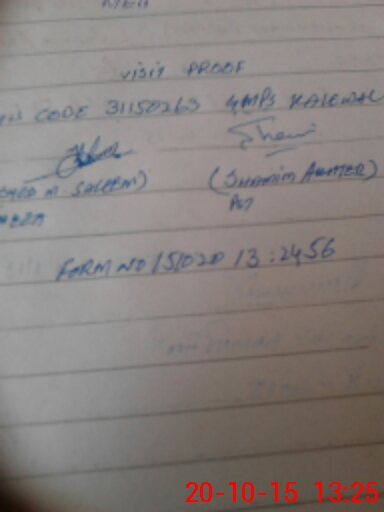 MEA
VISIT PROOF
CODE 31150263 GMPS KALEWAL
M. SALEEM) (SHAMIM AKHTER)
PST
FORM NO 151020 13:2456
20-10-15 13:25